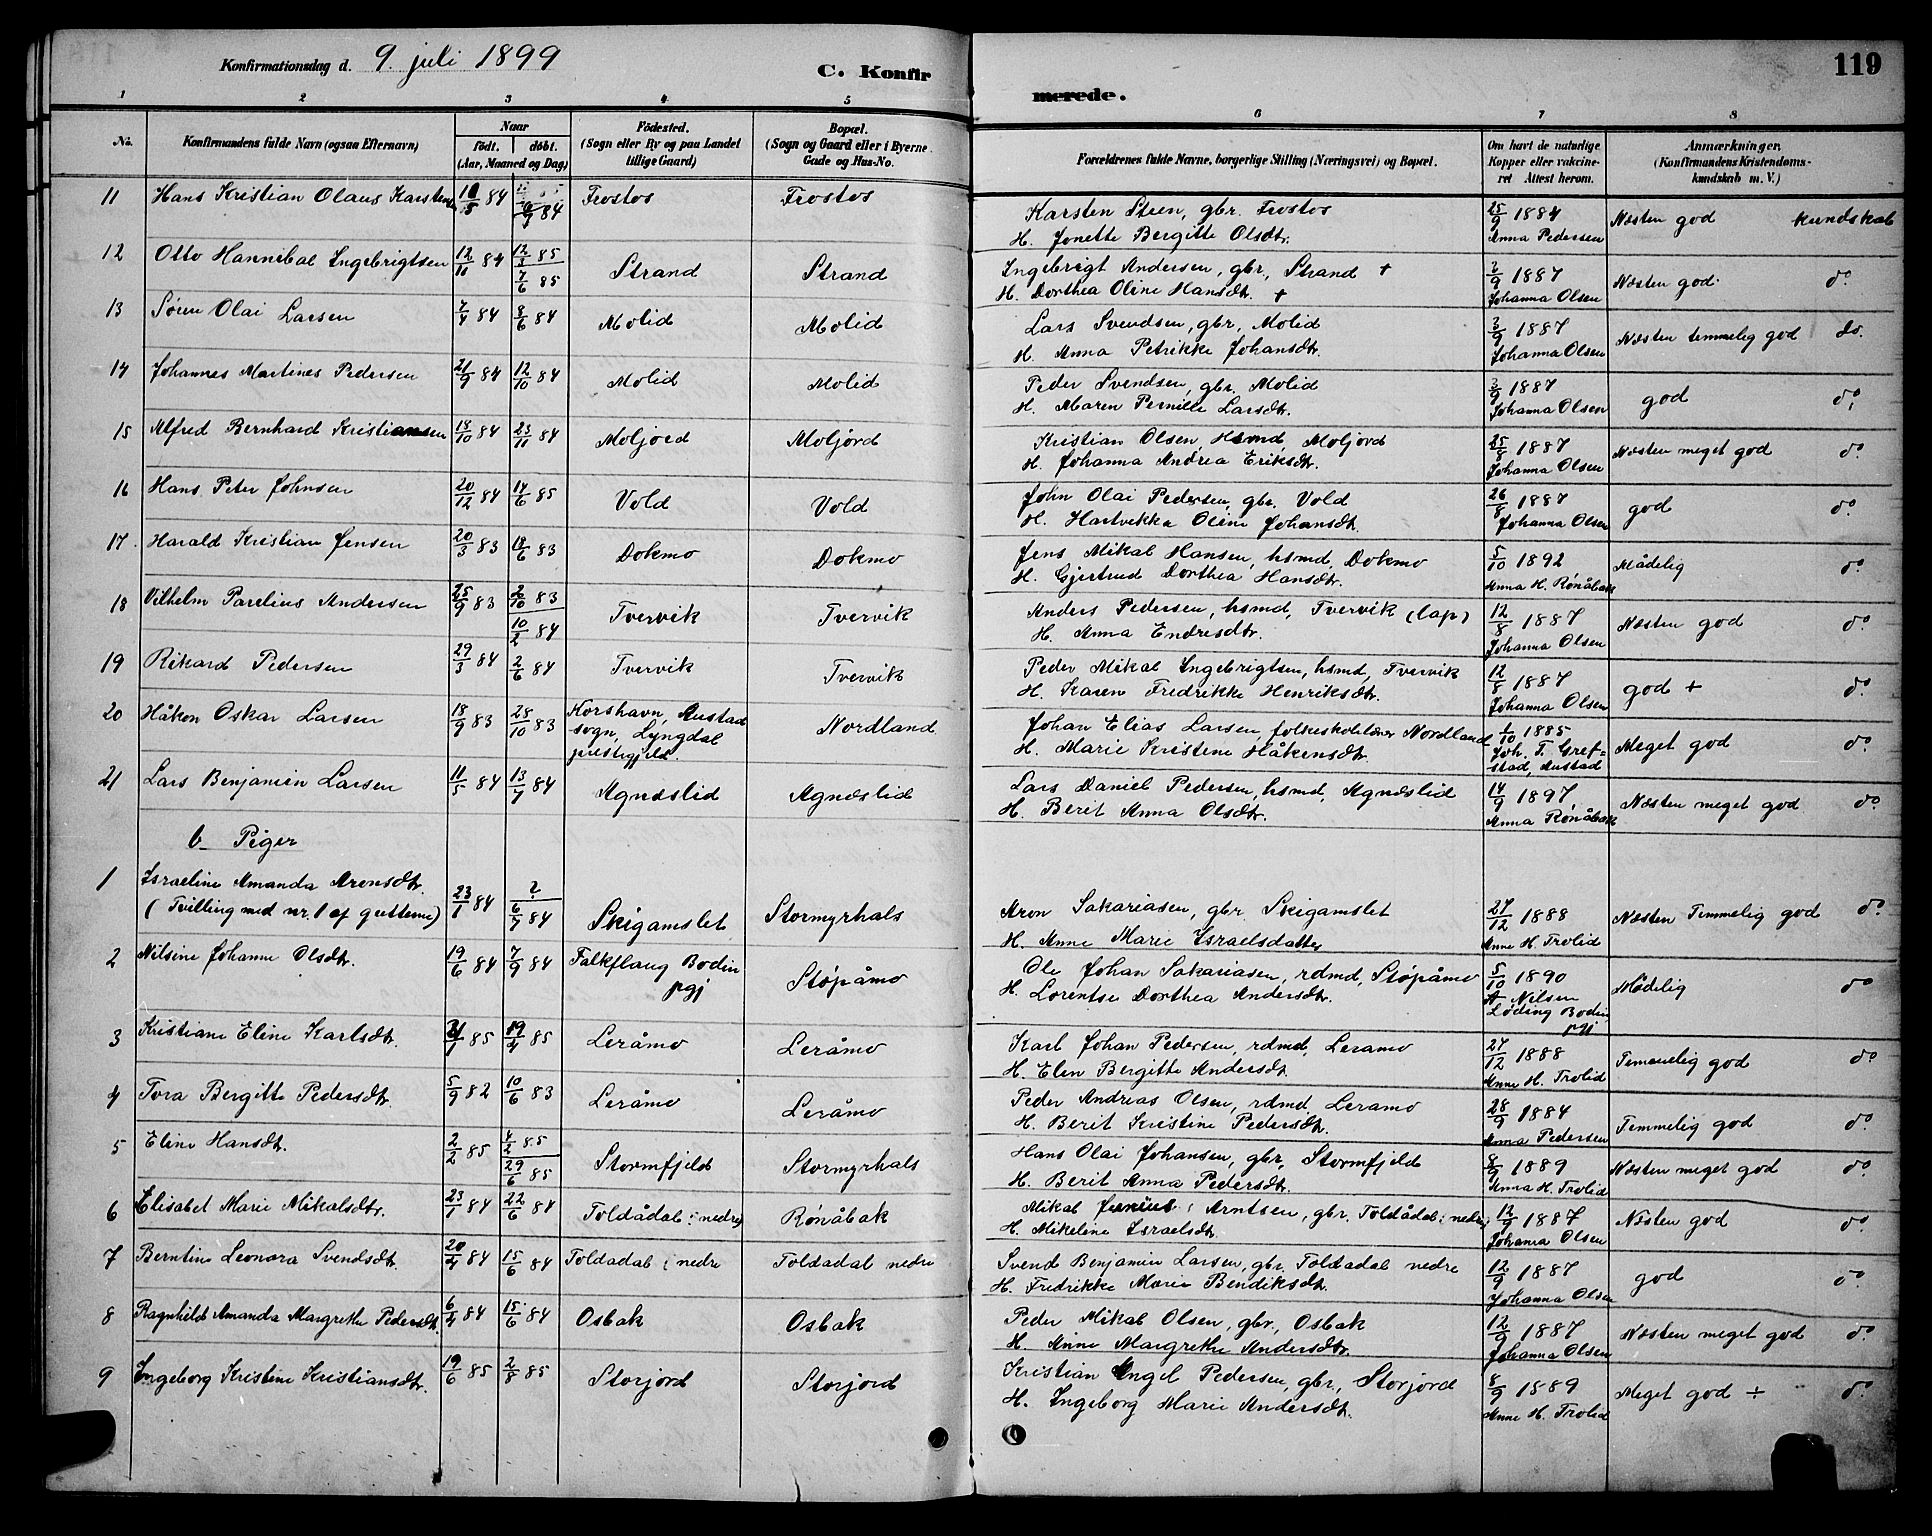 Konfirmationsdag d. 9. juli 1899
C. Konfirmerede.
119
1 2 3 4 5 6 7 8
No. Konfirmandens fulde Navn (ogsaa Efternavn) Naar født. døbt. (Aar, Maaned og Dag) Fødested. (Sogn eller By og paa Landet tillige Gaard) Bopæl. (Sogn og Gaard eller i Byerne Gade og Hus-No. Forældrenes fulde Navne, borgerlige Stilling (Næringsvei) og Bopæl. Om havt de naturlige Kopper eller vakcineret Attest herom. Anmærkninger. (Konfirmandens Kristendomskundskab m. V.)
11 Hans Kristian Olaus Karsten 84 84 Frostos Frostos Karsten Steen, gbr. Frostos 25/9 1884 Næsten god kundskab
H. Jonette Bergitte Olsdtr. Anna Pedersen
12 Otto Hannibal Ingebrigtsen 12/11 84 12/3 85 Strand Strand Ingebrigt Andersen, gbr, Strand + 2/9 1887 Næsten god do
7/6 85 H. Dorthea Oline Hansdt. + Johanna Olsen
13 Søren Olai Larsen 7/4 84 8/6 84 Molid Molid Lars Svendsen, gbr, Molid 3/9 1887 Næsten temmelig god do.
H. Anna Petrikke Johansdtr. Johanna Olsen
14 Johannes Martines Pedersen 21/9 84 12/10 84 Molid Molid Peder Svendsen, gbr. Molid 3/9 1887 god do
H. Maren Pernille Larsdtr. Johanna Olsen
15 Alfred Bernhard Kristiansen 18/10 84 23/11 84 Moljord Moljord Kristian Olsen Hsmd, Moljord 25/8 1887 Næsten meget god do
H. Johanna Andrea Eriksdtr. Johanna Olsen
16 Hans Peter Johnsen 20/12 84 14/6 85 Vold Vold John Olai Pedersen, gbr. Vold 26/8 1887 god do
H. Hartvikka Oline Johansdt. Johanna Olsen
17. Harald Kristian Jensen 20/3 83 18/6 83 Dokmo Dokmo Jens Mikal Hansen, hsmd, Dokmo 5/10 1892 Mådelig do
H. Gjertrud Dorthea Hansdtr. Anna H. Rønåbak
18 Vilhelm Parelius Andersen 25/9 83 2/10 83 Tvervik Tvervik Anders Pedersen, hsmd, Tvervik (lap) 12/8 1887 Næsten god do
10/2 84 H. Anna Endresdtr. Johanna Olsen
19 Rikard Pedersen 29/3 84 2/6 84 Tvervik Tvervik Peder Mikal Ingebrigtsen, hsmd, Tvervik 12/8 1887 god + do
H. Karen Fredrikke Henriksdtr. Johanna Olsen
20 Håkon Oskar Larsen 18/9 83 28/10 83 Korshavn, Austad sogn, Lyngdal prestigjeld. Nordland Johan Elias Larsen, folkeskolelærer Nordland 1/10 1885 Meget god do
H. Marie Kristine Håkensdtr. Joh. T. Grefstad, Austad
21 Lars Benjamin Larsen 11/5 84 13/7 84 Agnæslid Agnæslid Lars Daniel Pedersen, hsmd, Agnæslid 14/9 1897, Næsten meget god do
H. Berit Anna Olsdtr. Anna Rønåbak
b. Piger
1 Israeline Amanda Aronsdtr. 23/1 84 ? Skigamslet Stormyrhals Aron Sakariasen, gbr. Skigamslet 27/12 1888 Næsten Temmelig god do
(Tvilling med nr. 1 af gutterne) 6/7 84 H. Anne Marie Israelsdatter Anne H. Trolid
2 Nilsine Johanne Olsdtr. 19/6 84 7/9 84 Falkflaug Bodin pgj Støpåmo Ole Johan Sakariasen, rdmd, Støpåmo 5/10 1890 Mådelig do
H. Lorentse Dorthea Andersdtr. A Nilsen Løding Bodin pgj
3 Kristiane Eline Karlsdtr. 85 19/4 85 Leråmo Leråmo Karl Johan Pedersen, rdmd, Leramo 27/12 1888 Temmelig god do
H. Elen Bergitte Andersdt. Anne H. Trolid
4 Tora Bergitte Pedersdtr. 5/9 82 10/6 83 Leråmo Leråmo Peder Andreas Olsen, rdmd, Leramo 28/9 1884 Temmelig god do
H. Berit Kristine Pedersdtr. Anna Pedersen
5 Eline Hansdt. 2/2 85 4/2 85 Stormfjeld Stormyrhals Hans Olai Johansen, gbr, Stormfjeld 8/9 1889 Næsten meget god do
29/6 85 H. Berit Anna Pedersdtr. Anna H. Trolid
6 Elisabet Marie Mikalsdtr. 23/1 84 22/6 84 Toldådal: nedre Rønåbak Mikal Junius Arntsen, gbr, Toldådal: nedre 12/9 1887 Næsten god do
H. Mikeline Israelsdt. Johanna Olsen
7 Berntine Leonora Svendsdtr. 20/4 84 15/6 84 Toldadal: nedre Toldadal nedre Svend Benjamin Larsen, gbr, Toldadal nedre 12/9 1887 god do
H. Fredrikke Marie Bendiksdt. Johanna Olsen
8 Ragnhild Amanda Margrethe Pedersdt. 6/4 84 15/6 84 Osbak Osbak Peder Mikal Olsen, gbr, Osbak 12/9 1887 Næsten meget god do
H. Anne Margrethe Andersdtr. Johanna Olsen
9 Ingeborg Kristine Kristiansdtr. 19/6 85 2/8 85 Storjord Storjord Kristian Engel Pedersen, gbr., Storjord 8/9 1889 Meget god ÷ do
H. Ingeborg Marie Andersdt. Anne H. Trolid